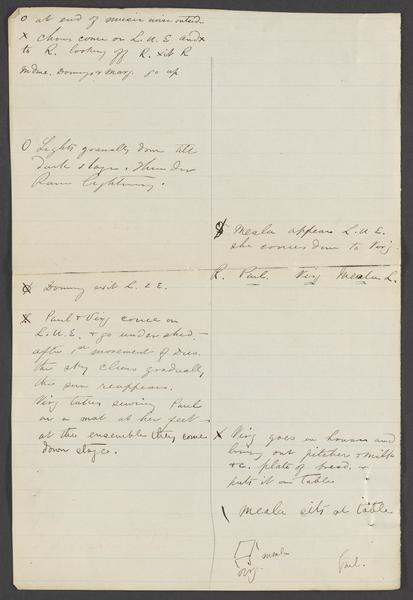 O at end of music noise outside
X chors come on L.U.E and X
to R. looking off R. xit R
Mdme. Doming & Marg. go up
O Lights gradually down till
dark stage. Thunder
Rain lightning.
Meala appears L.U.E.
she comes down to Virg.
R. Paul. Virg Meala L.
Doming exit L. 2 E.
X Paul & Virg come on
L.U.E. & go under shed.
after 1st movement of Duo.
the sky clears gradually
the sun reappears.
Virg takes sewing Paul
on a mat at her feet
at the ensemble they come
down stage.
X Virg goes in house and
bring out pitcher & milk
&c. plate of bread. &
puts it on table
\ Meala sits at table
meala
Virg.
Paul.